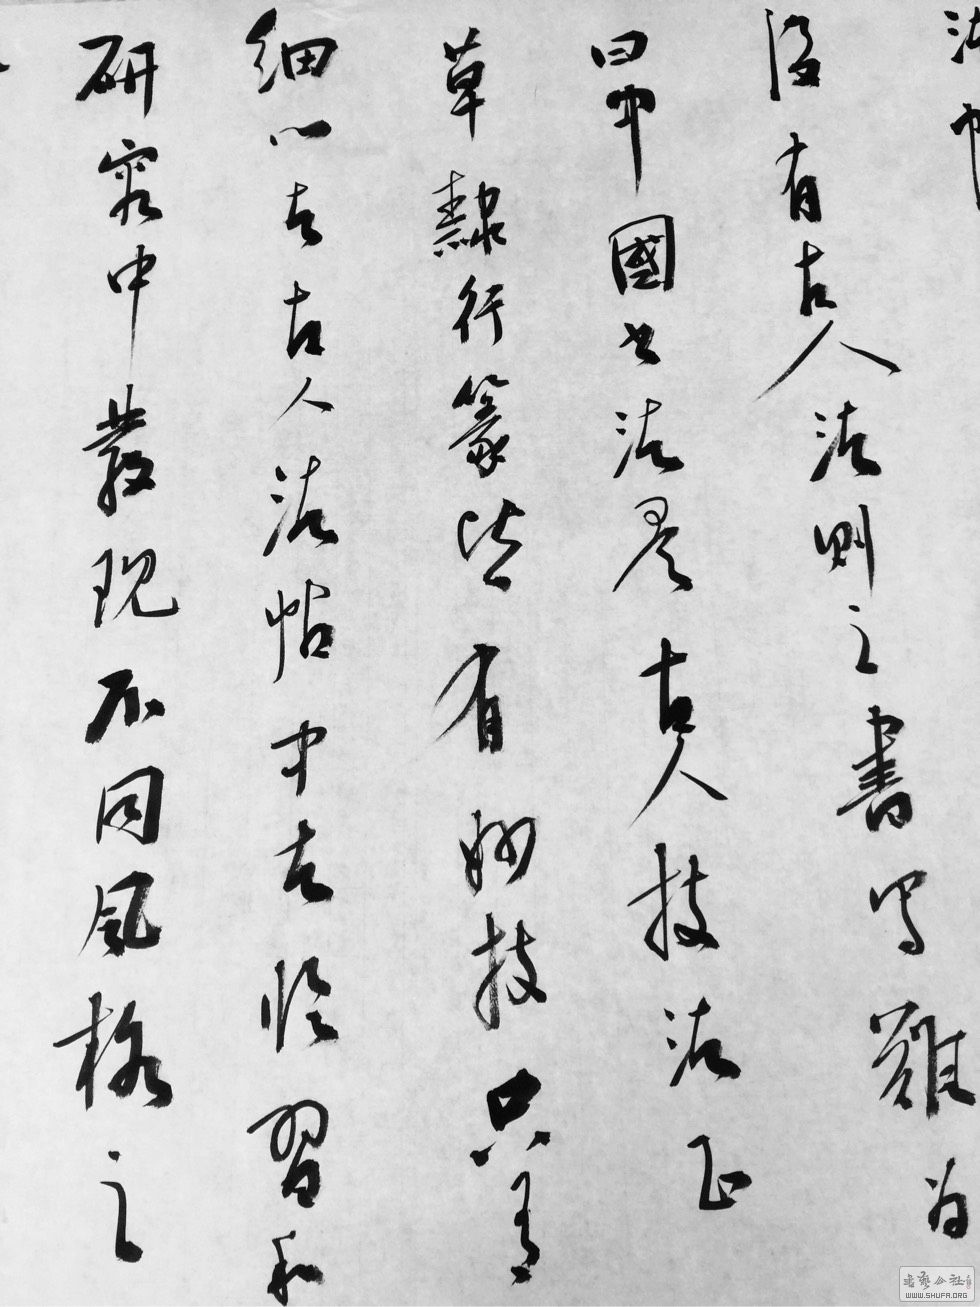 法帖
沒有古人法則之書寫難為
曰中國書法是古人技法正
草隸行篆皆有妙技只有
細心去古人法帖中去臨習和
研究中發現不同風格之
書藝公社
WWW.SHUFA.ORG